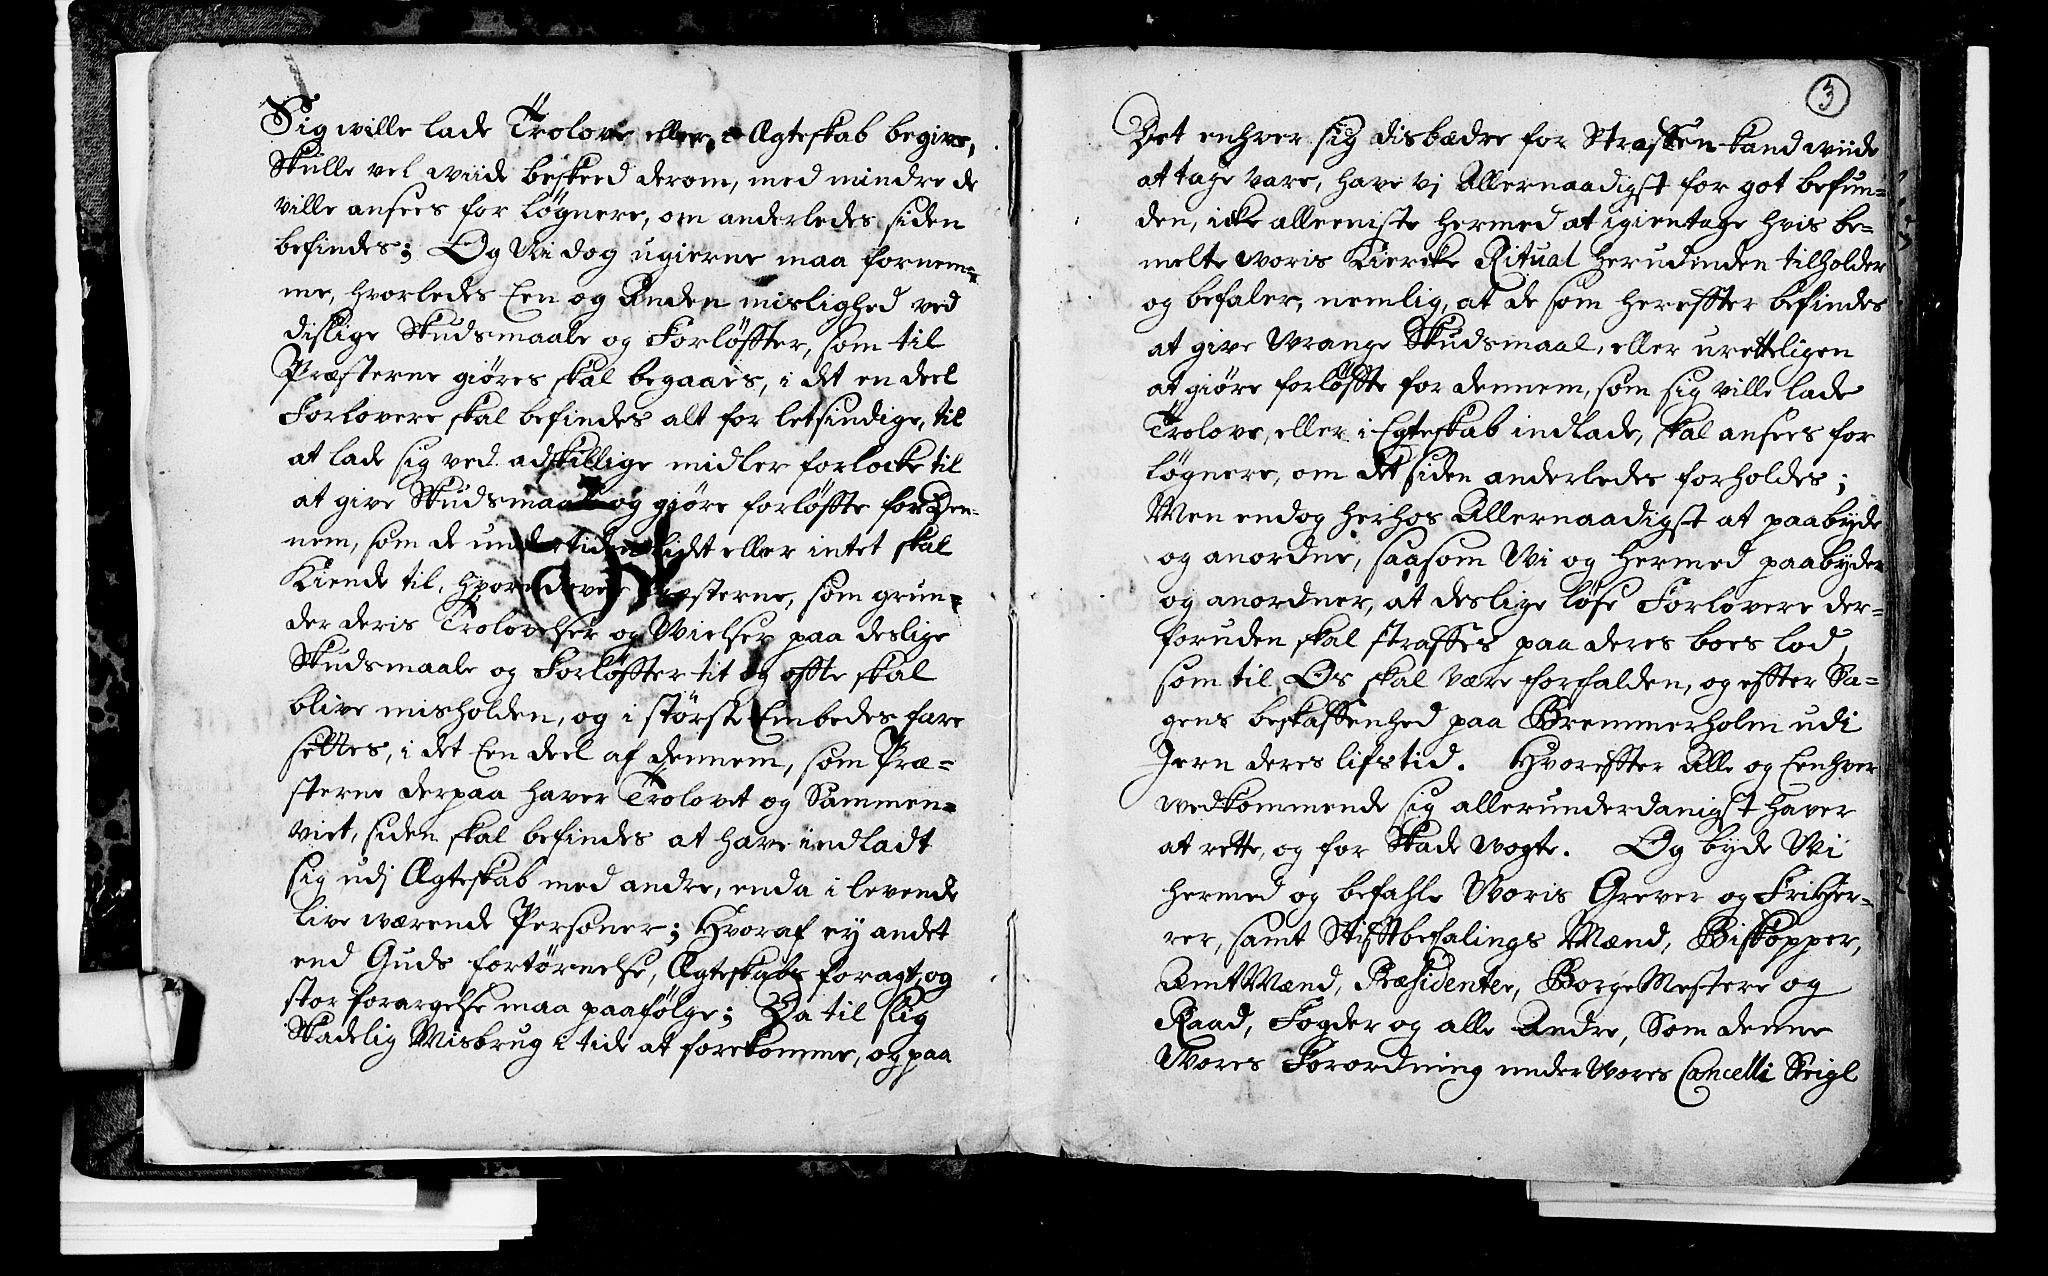 Sig wille lade Trolove eller, i Ægteskab begive,
Skulle vel wiide beskeed derom, med mindre de
ville ansees for løgnere, om anderledes siden
befindes; Og Vi dog ugierne maa fornem=
me, hvorledes Een og Anden mislighed ved
dislige Skudsmaale og Forløffter, som til
Præsterne giøres skal begaaes, i det en deel
Forlovere skal befindes alt for letsindige, til
at lade sig ved adskillige midler forlocke til
at give Skudsmaal og giøre forløffte for Den=
nem, som de undertiden lidt eller intet skal
Kiende til, hvorudover Præsterne, som grun=
der deris Trolovelser og Wielser paa deslige
Skudsmaale og Forløffter tit og offte skal
blive misholden, og i største Embedes fare
settes, i det Een deel af dennem, som Præ=
sterne derpaa haver Trolovet og Sammen=
viet, siden skal befindes at have indladt
sig udj Ægteskab med andre, enda i levende
live wærende Personer; Hvoraf ey andet
end Guds fortørnelse, Ægteskabs foragt, og
stor forargelse maa paafølge; Da til slig
Skadelig Misbrug i tide at forekomme, og paa
3
Det enhver sig disbædre for Straffen kand wiide
at tage vare, have vj Allernaadigst for got befun=
den, icke alleeniste hermed at igientage hvis be=
melte woris Kiercke Ritual herudinden tilholder
og befaler, nemlig, at de som hereffter befindes
at give Wrange Skudsmaal, eller uretteligen
at giøre forløffte for dennem, som sig ville lade
Trolove, eller i Egteskab indlade, skal ansees for
løgnere, om det siden anderledes forholdes;
Men endog herhos Allernaadigst at paabyde
og anordne, saasom Wi og hermed paabyder
og anordner, at deslige løse Forlovere der=
foruden skal straffes paa deres boes lod,
som til Os skal være forfalden, og effter Sa=
gens beskaffenhed paa Bremmerholm udi
Jern deres lifstid. Hvoreffter Alle og Eenhver
wedkommende sig allerunderdanigst haver
at rette, og for Skade wogte. Og byde Wi
hermed og befahle Woris Grever og Friher=
rer, samt Stifftbefalings Mænd, Biskopper,
AmtMænd, Præsidenter, BorgeMestere og
Raad, Fogder og alle Andre, Som denne
Wores Forordning under Wores Cancelli Seigl